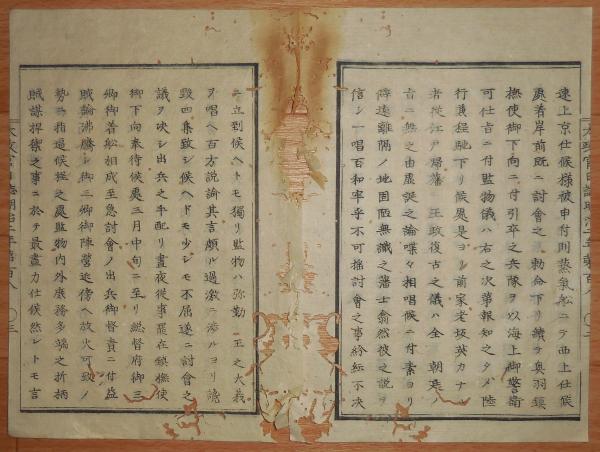 速上京仕候様被申付則蒸氣舩ニテ西上仕候
處着岸前既ニ討會之 勅命下リ續テ奥羽鎮
撫使御下向ニ付引卒之兵隊ヲ以海上御警衛
可仕旨ニ付監物儀ハ右之次第報知之タメ陸
行裏経馳下リ候
者従江戸帰藩 王政復古之儀ハ全 朝意
ニ無之由虚誕之論喋々相唱候ニ付素ヨリ
僻遠離隔ノ地固陋無識之藩士翕然彼之説ヲ
信シ一唱百和牢乎不可揺討會之事紛紜不決
ニ立到候ヘトモ獨リ監物ハ弥勤 王之大義
ヲ唱ヘ百方説諭其言頗ル過激ニ渉ルヨリ讒
毀四集致シ候ヘトモ少シモ不屈遂ニ討會之
議ヲ決シ出兵之手配リ晝夜従事罷在鎮撫使
御下向奉待候處三月中旬ニ至リ総督府御三
卿御着舩相成至急討會ノ出兵御督責ニ付益
賊論沸騰シ御三卿御陣營近傍ヘ放火可致ノ
勢ニ相迫候
賊謀捍禦之事ニ於テ最盡力仕候然レトモ言
太政官日誌明治二年第百八